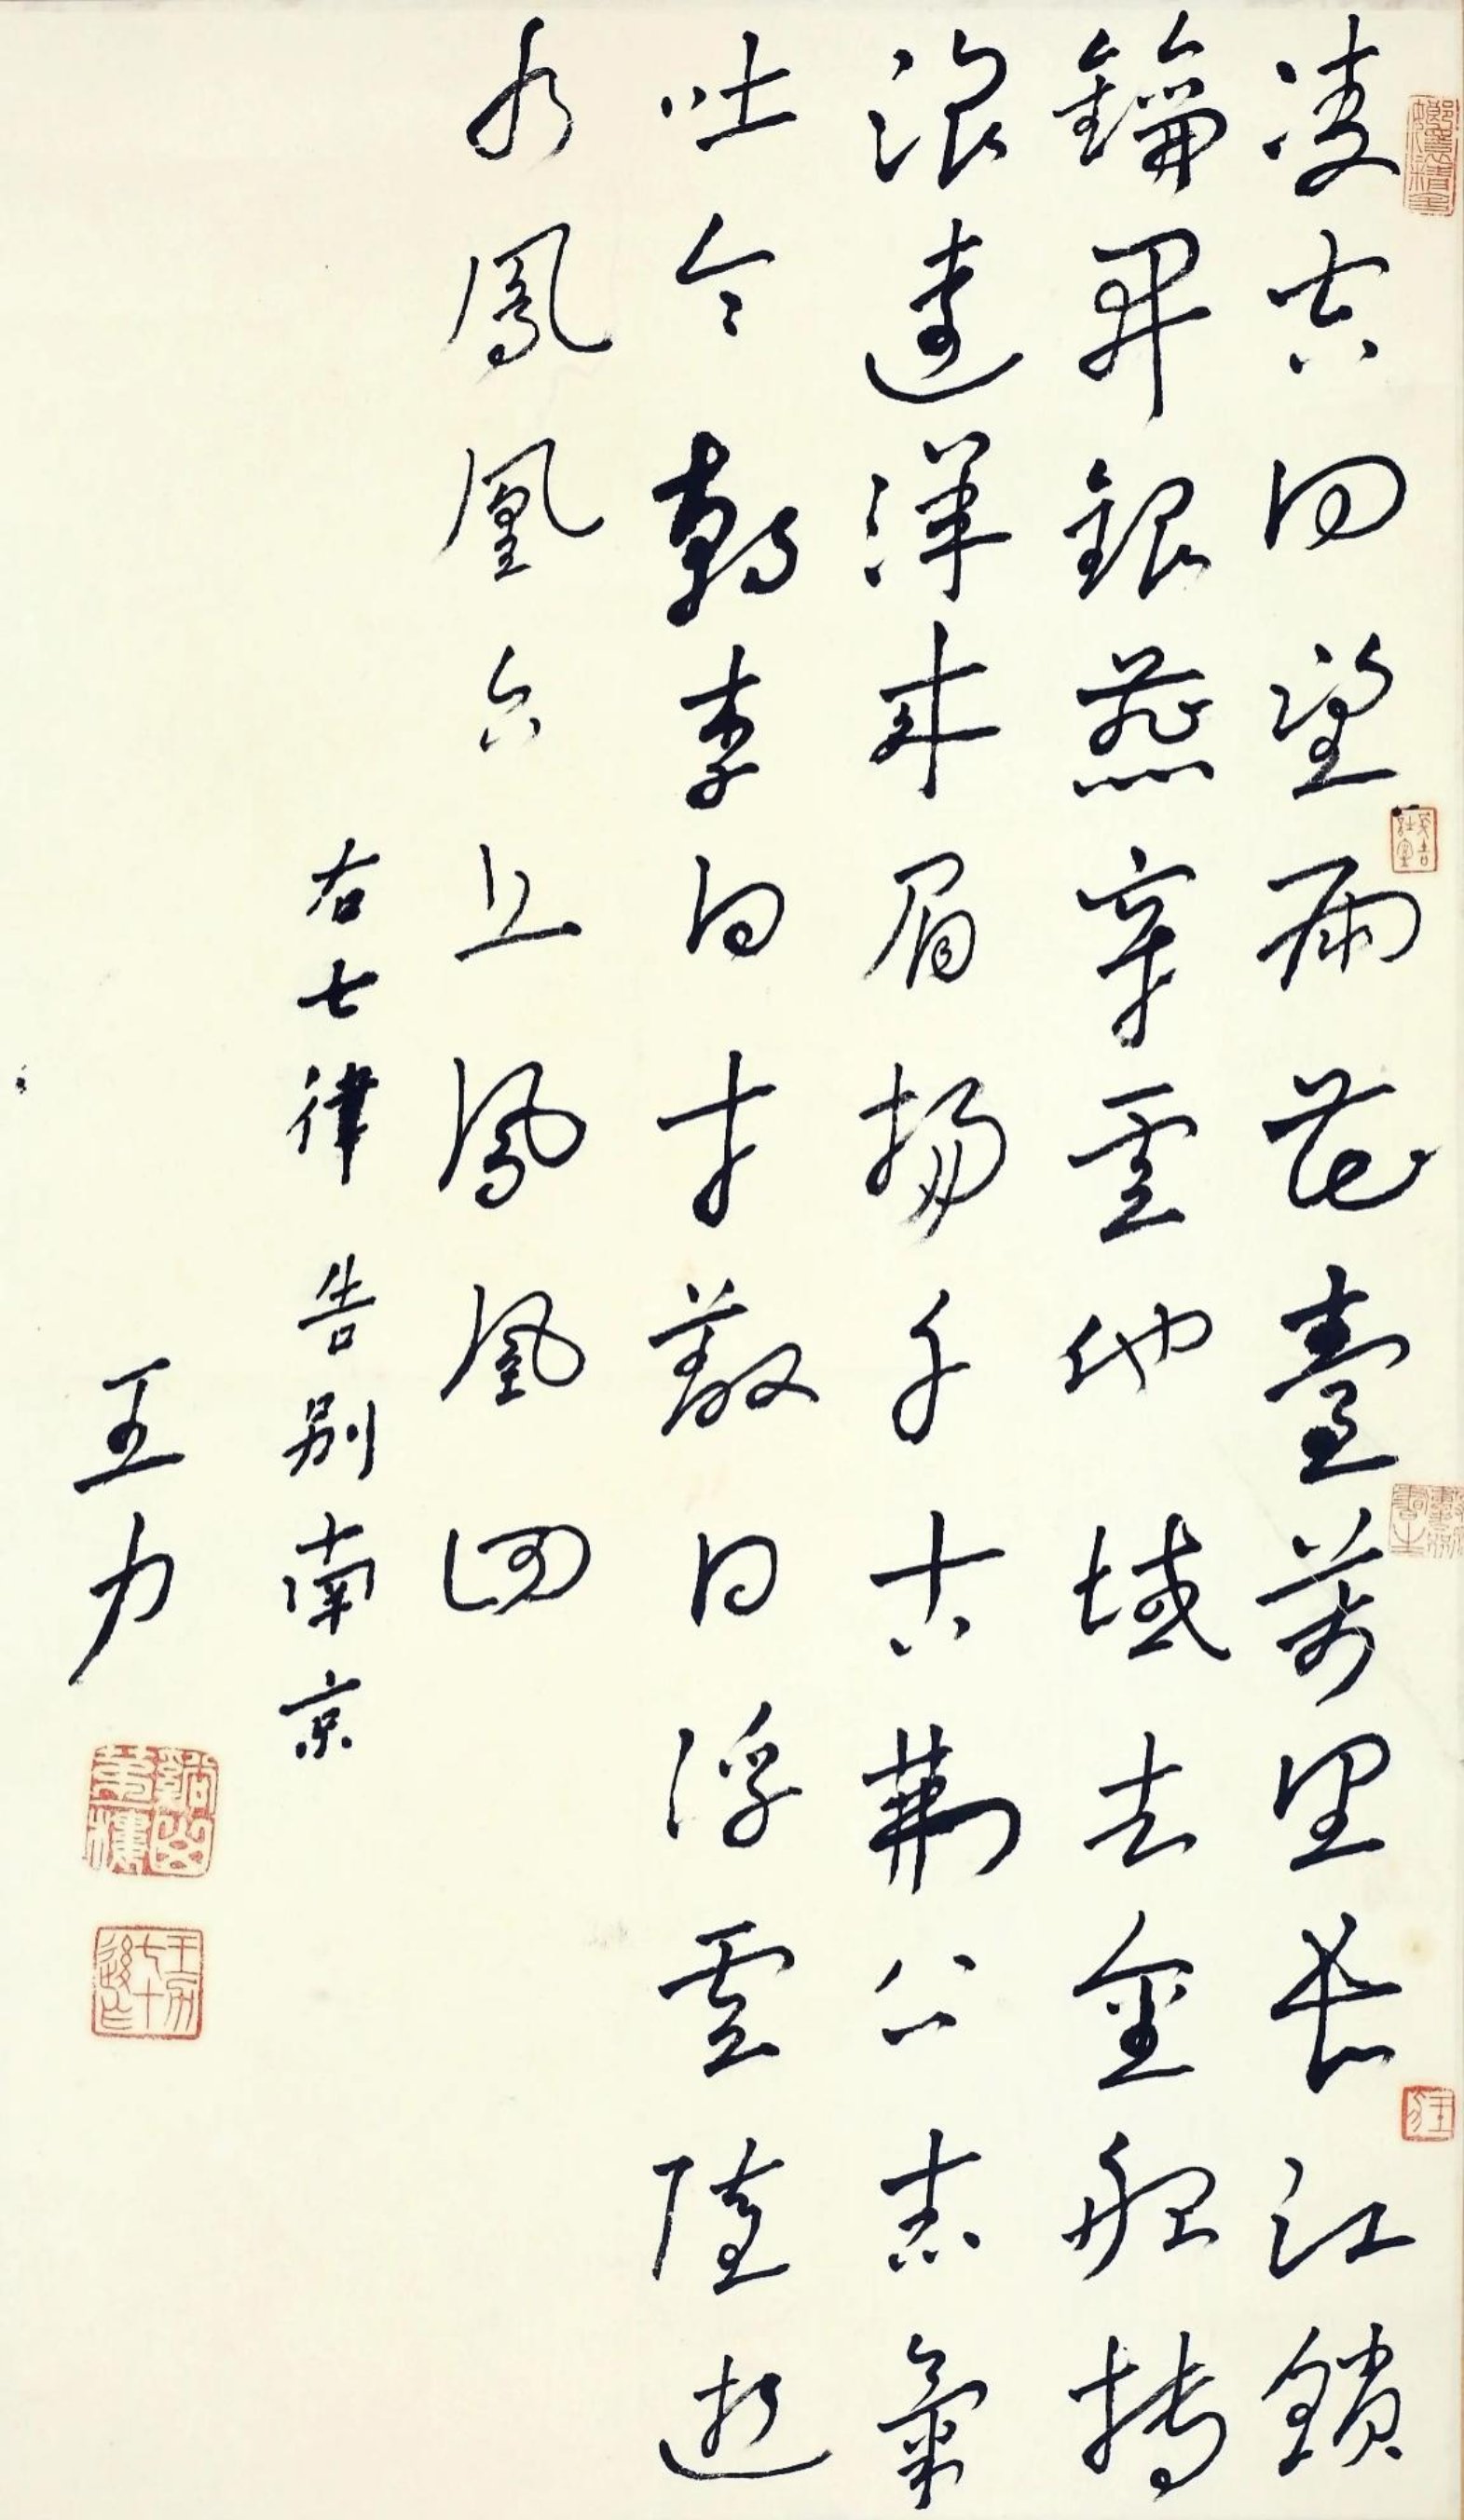 凌空回望雨花臺萬里長江鎖
鑰開銀燕穿雲他域去金船搏
浪遠洋來眉揚千古荊公志氣
吐今朝李白才蔽日浮雲隨逝
水鳳凰台上鳳凰回
右七律 告别南京
王力